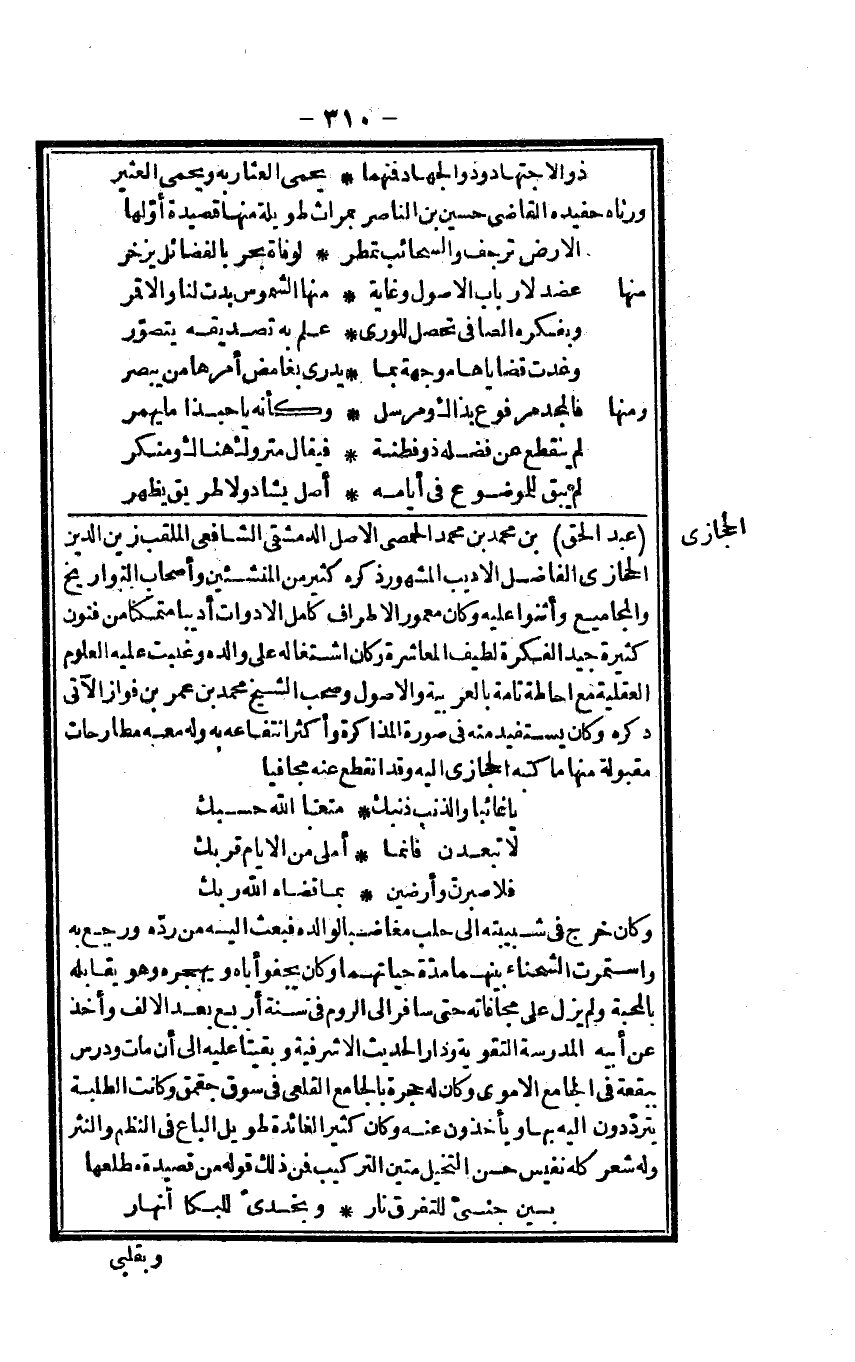 - ٣١٠ -
ذو الاجتهاد وذو الجهاد فنهما * يحمى العثار به ويحمى العثير
ورثاه حفيده القاضى حسين بن الناصر بمراث طويلة منها قصيدة أوّلها
الارض ترجف والسحائب تمطر * لوفاة بحر بالفضائل يزخر
منها عضد لارباب الاصول وغاية * منها الشموس بدت لنا والاقمر
وبفكره الصافى تحصل للورى * علم به تصديقه يتصوّر
وغدت قضاياها موجهة بما * يدرى بغامض أمرها من يبصر
ومنها فالمجد مرفوع بذاك ومرسل * وكأنه ياحبذا ما يهمر
لم ينقطع عن فضله ذو فطنة * فيقال متروك هناك ومنكر
لم يبق للموضوع فى أيامه * أصل يشاد ولا طريق يظهر
الحجازى
(عبد الحق) بن محمد بن محمد الحمصى الاصل الدمشقى الشافعى الملقب زين الدين
الحجازى الفاضل الاديب المشهور ذكره كثير من المنشئين وأصحاب التواريخ
والمجاميع وأثنوا عليه وكان معمور الاطراف كامل الادوات أديبا متمكنا من فنون
كثيرة جيد الفكرة لطيف المعاشرة وكان اشتغاله على والده وغلبت عليه العلوم
العقلية مع احاطة تامة بالعربية والاصول وصحب الشيخ محمد بن عمر بن فواز الآتى
ذكره وكان يستفيد منه فى صورة المذاكرة وأكثر انتفاعه به وله معه مطارحات
مقبولة منها ما كتبه الحجازى اليه وقد انقطع عنه مجافيا
يا غائبا والذنب ذنبك * متعنا الله حسبك
لا تبعدن فانما * أملى من الايام قربك
فلاصبرن وأرضين * بما قضاه الله ربك
وكان خرج فى شبيبته الى حلب مغاضبا لوالده فبعث اليه من ردّه ورجع به
واستمرت الشحناء بينهما مدّة حياتهما وكان يجفو أباه ويهجره وهو يقابله
بالمحبة ولم يزل على مجافاته حتى سافر الى الروم فى سنة أربع بعد الالف وأخذ
عن أبيه المدرسة التقوية ودار الحديث الاشرفية وبقيتا عليه الى أن مات ودرس
ببقعة فى الجامع الاموى وكان له حجرة بالجامع القلعى فى سوق جقمق وكانت الطلبة
يتردّدون اليه بها ويأخذون عنه وكان كثير الفائدة طويل الباع فى النظم والنثر
وله شعر كله نفيس حسن التخيل متين التركيب فمن ذلك قوله من قصيدة مطلعها
بين جنبىّ للتفرق نار * وبخدىّ للبكا أنهار
وبقلبى